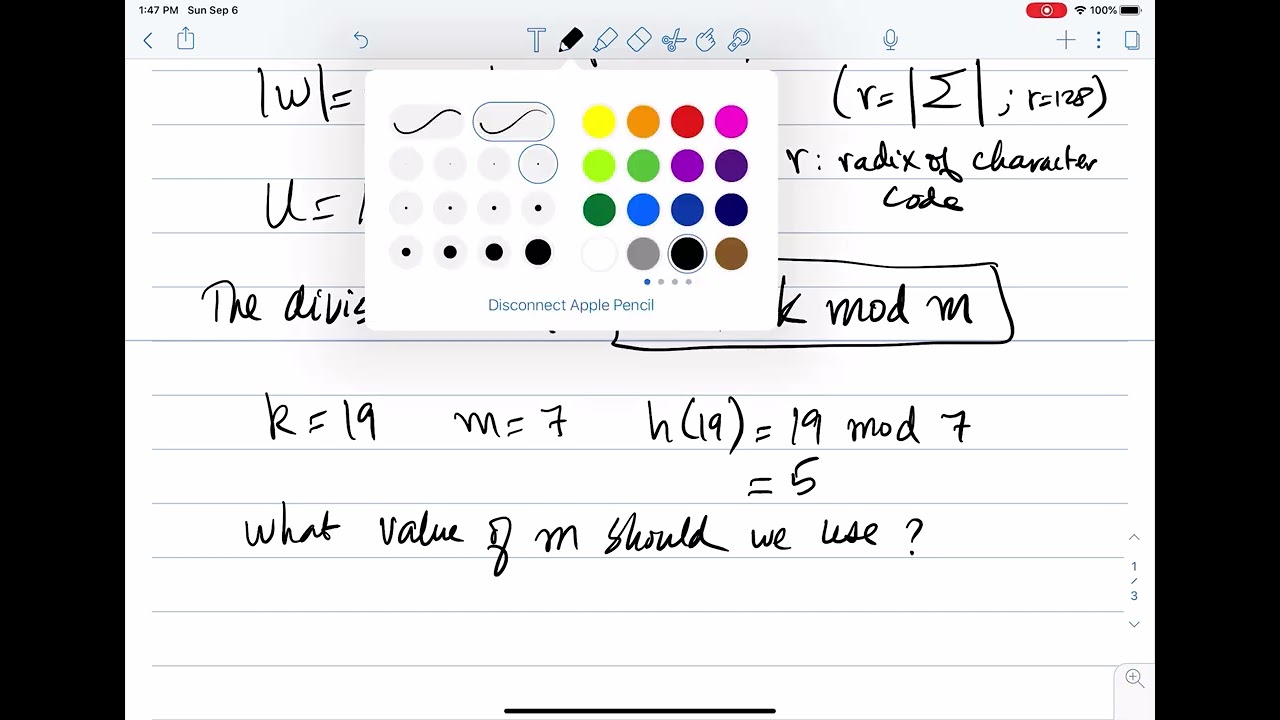 1:47 PM Sun Sep 6
100%
|W|=
(r=|Σ| ; r=128)
r : radix of character
code
U=
Disconnect Apple Pencil
The divis
k mod m
k = 19 m = 7 h(19) = 19 mod 7
= 5
What value of m should we use ?
1
/
3